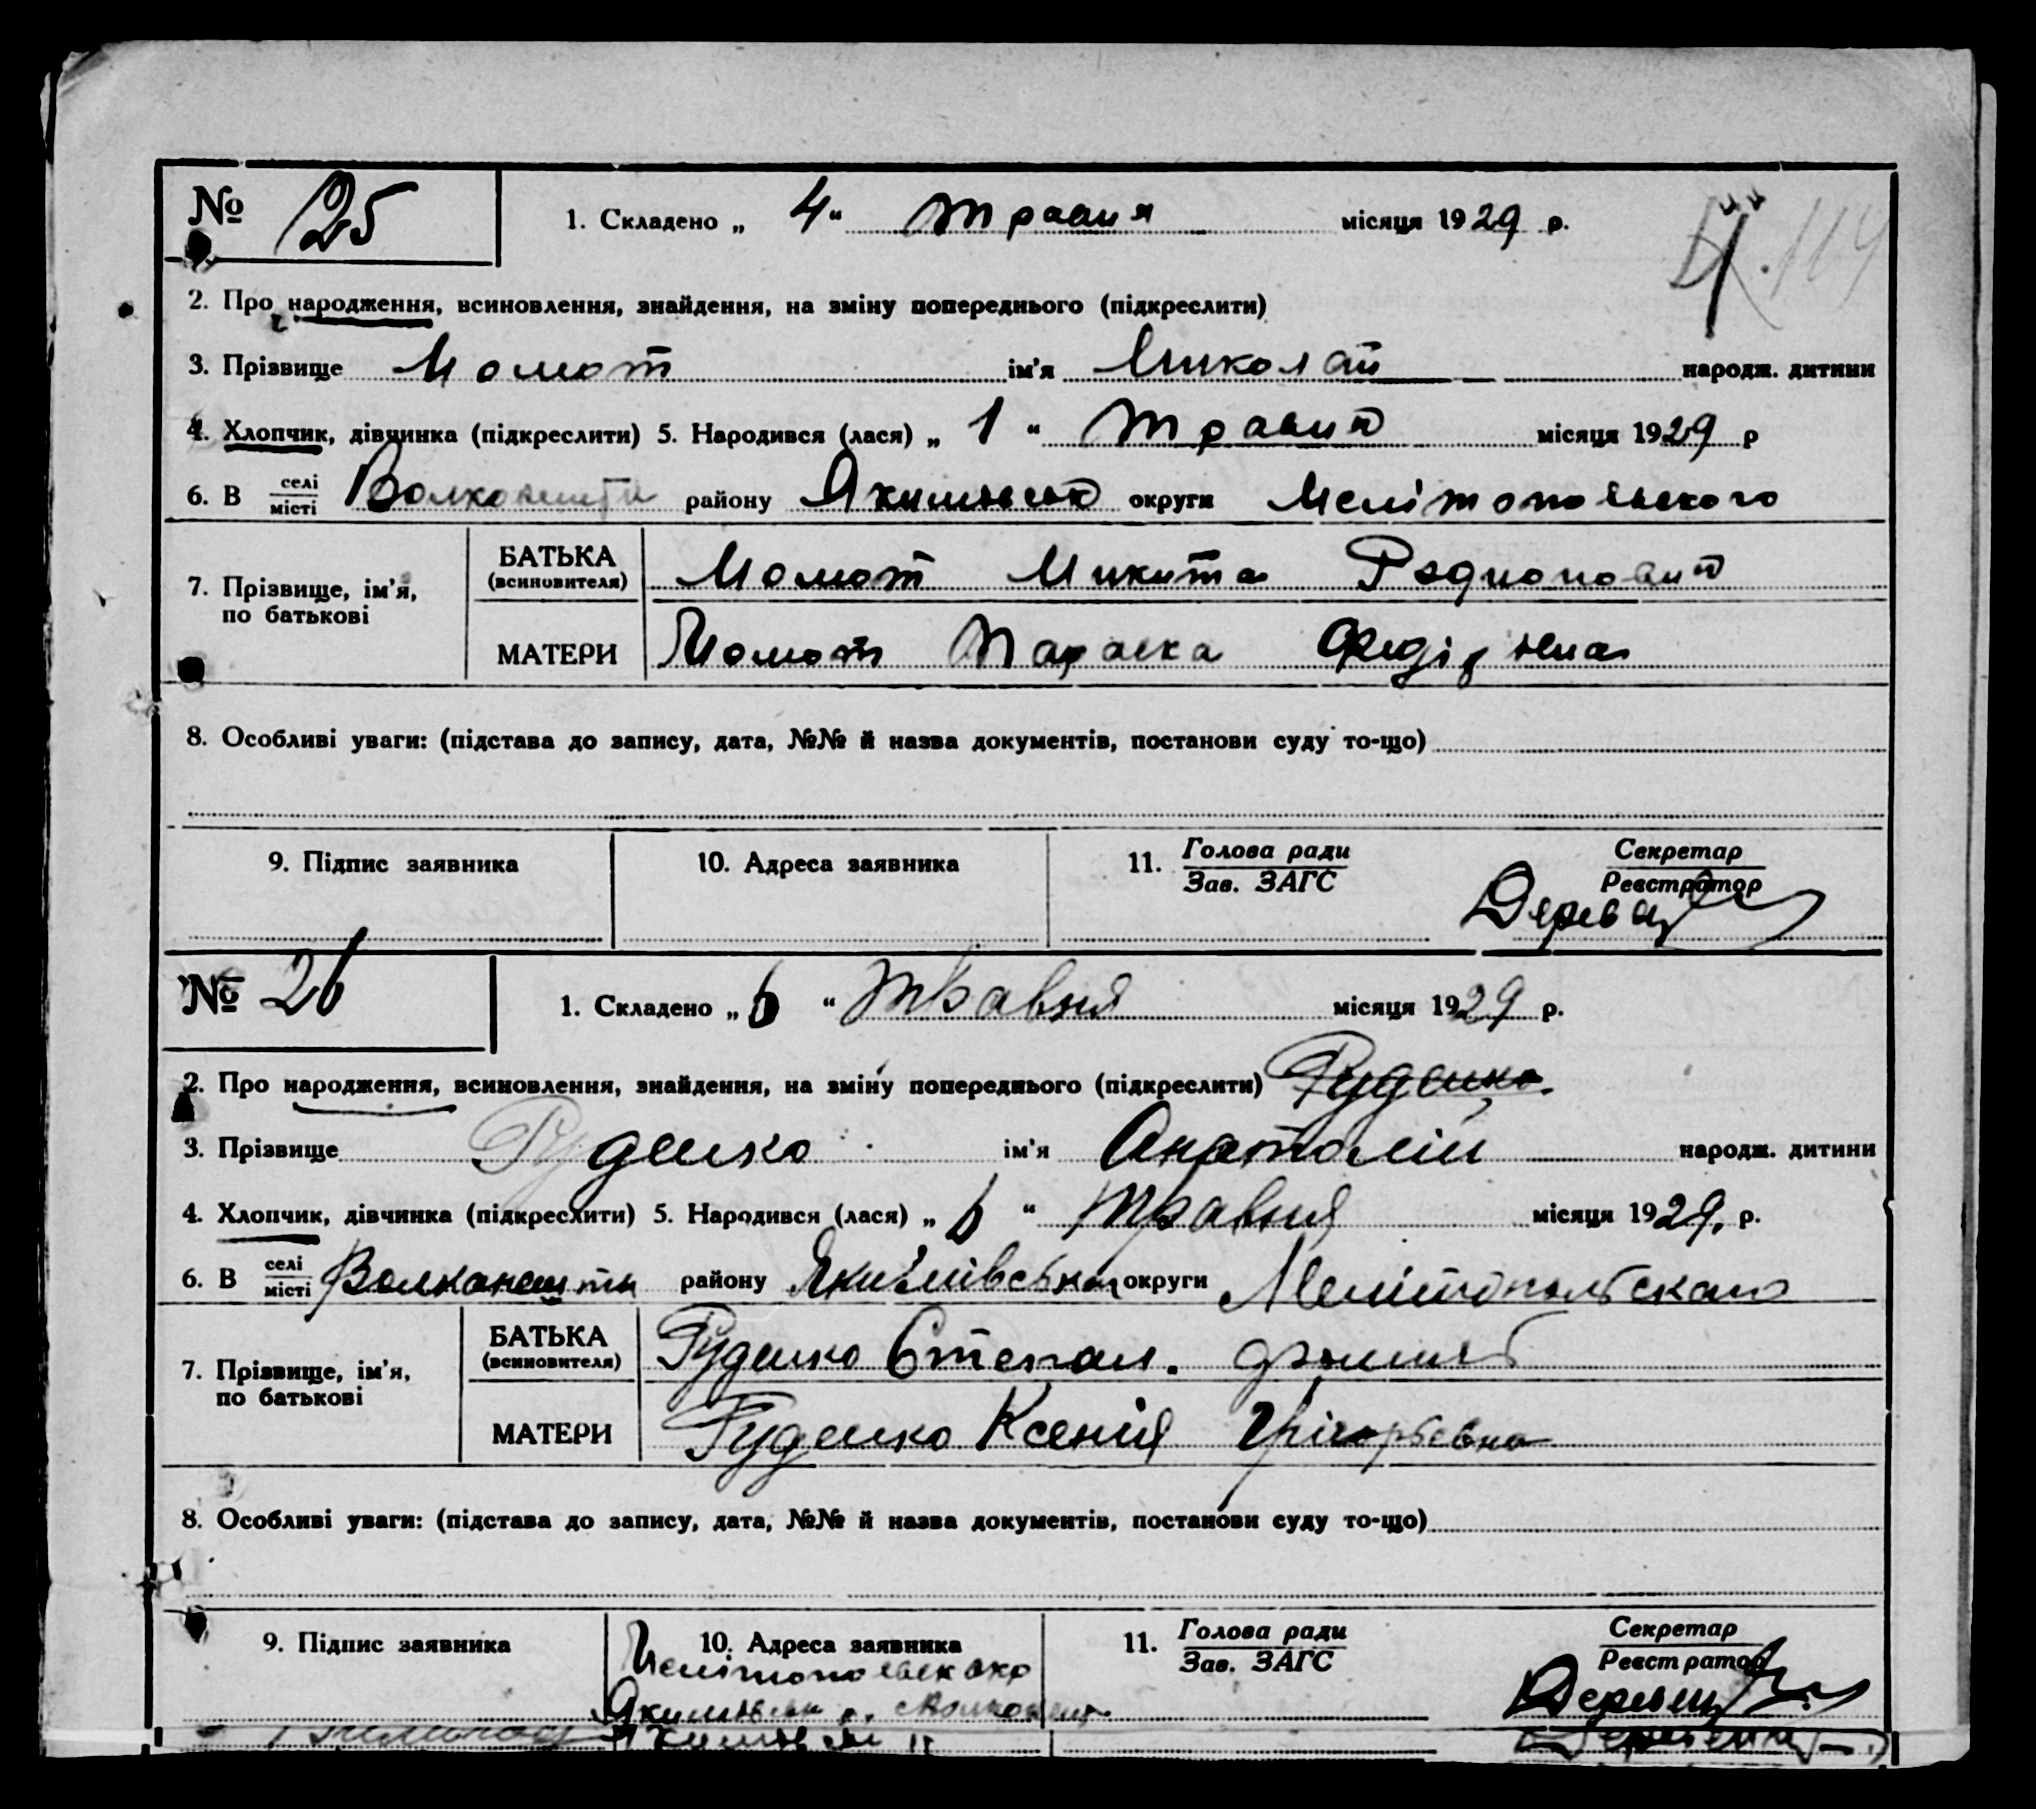 № 25
1. Складено „ 4 “ травня місяця 1929 р.
2. Про народження, всиновлення, знайдення, на зміну попереднього (підкреслити)
3. Прізвище Момот ім'я Миколай народж. дитини
4. Хлопчик, дівчинка (підкреслити) 5. Народився (лася) „ 1 “ травня місяця 1929 р
6. В селі/місті Волконешти району Якимівськ округи Мелітопольского
7. Прізвище, ім'я, по батькові
БАТЬКА (всиновителя) Момот Микита Родионович
МАТЕРИ Момот Параска Федірівна
8. Особливі уваги: (підстава до запису, дата, №№ й назва документів, постанови суду то-що)
9. Підпис заявника
10. Адреса заявника
11. Голова ради/Зав. ЗАГС
Секретар/Реєстратор
№ 26
1. Складено „ 6 “ травня місяця 1929 р.
2. Про народження, всиновлення, знайдення, на зміну попереднього (підкреслити) Руденко
3. Прізвище Руденко ім'я Анатолій народж. дитини
4. Хлопчик, дівчинка (підкреслити) 5. Народився (лася) „ 6 “ травня місяця 1929, р.
6. В селі/місті Волканешти району Якимівська округи Мелітопольскаго
7. Прізвище, ім'я, по батькові
БАТЬКА (всиновителя) Руденко Степан.
МАТЕРИ Руденко Ксенія Грігорьевна
8. Особливі уваги: (підстава до запису, дата, №№ й назва документів, постанови суду то-що)
9. Підпис заявника
10. Адреса заявника
Мелітопольского
Якимівськ р. с Волконешт
11. Голова ради/Зав. ЗАГС
Секретар/Реєстратор